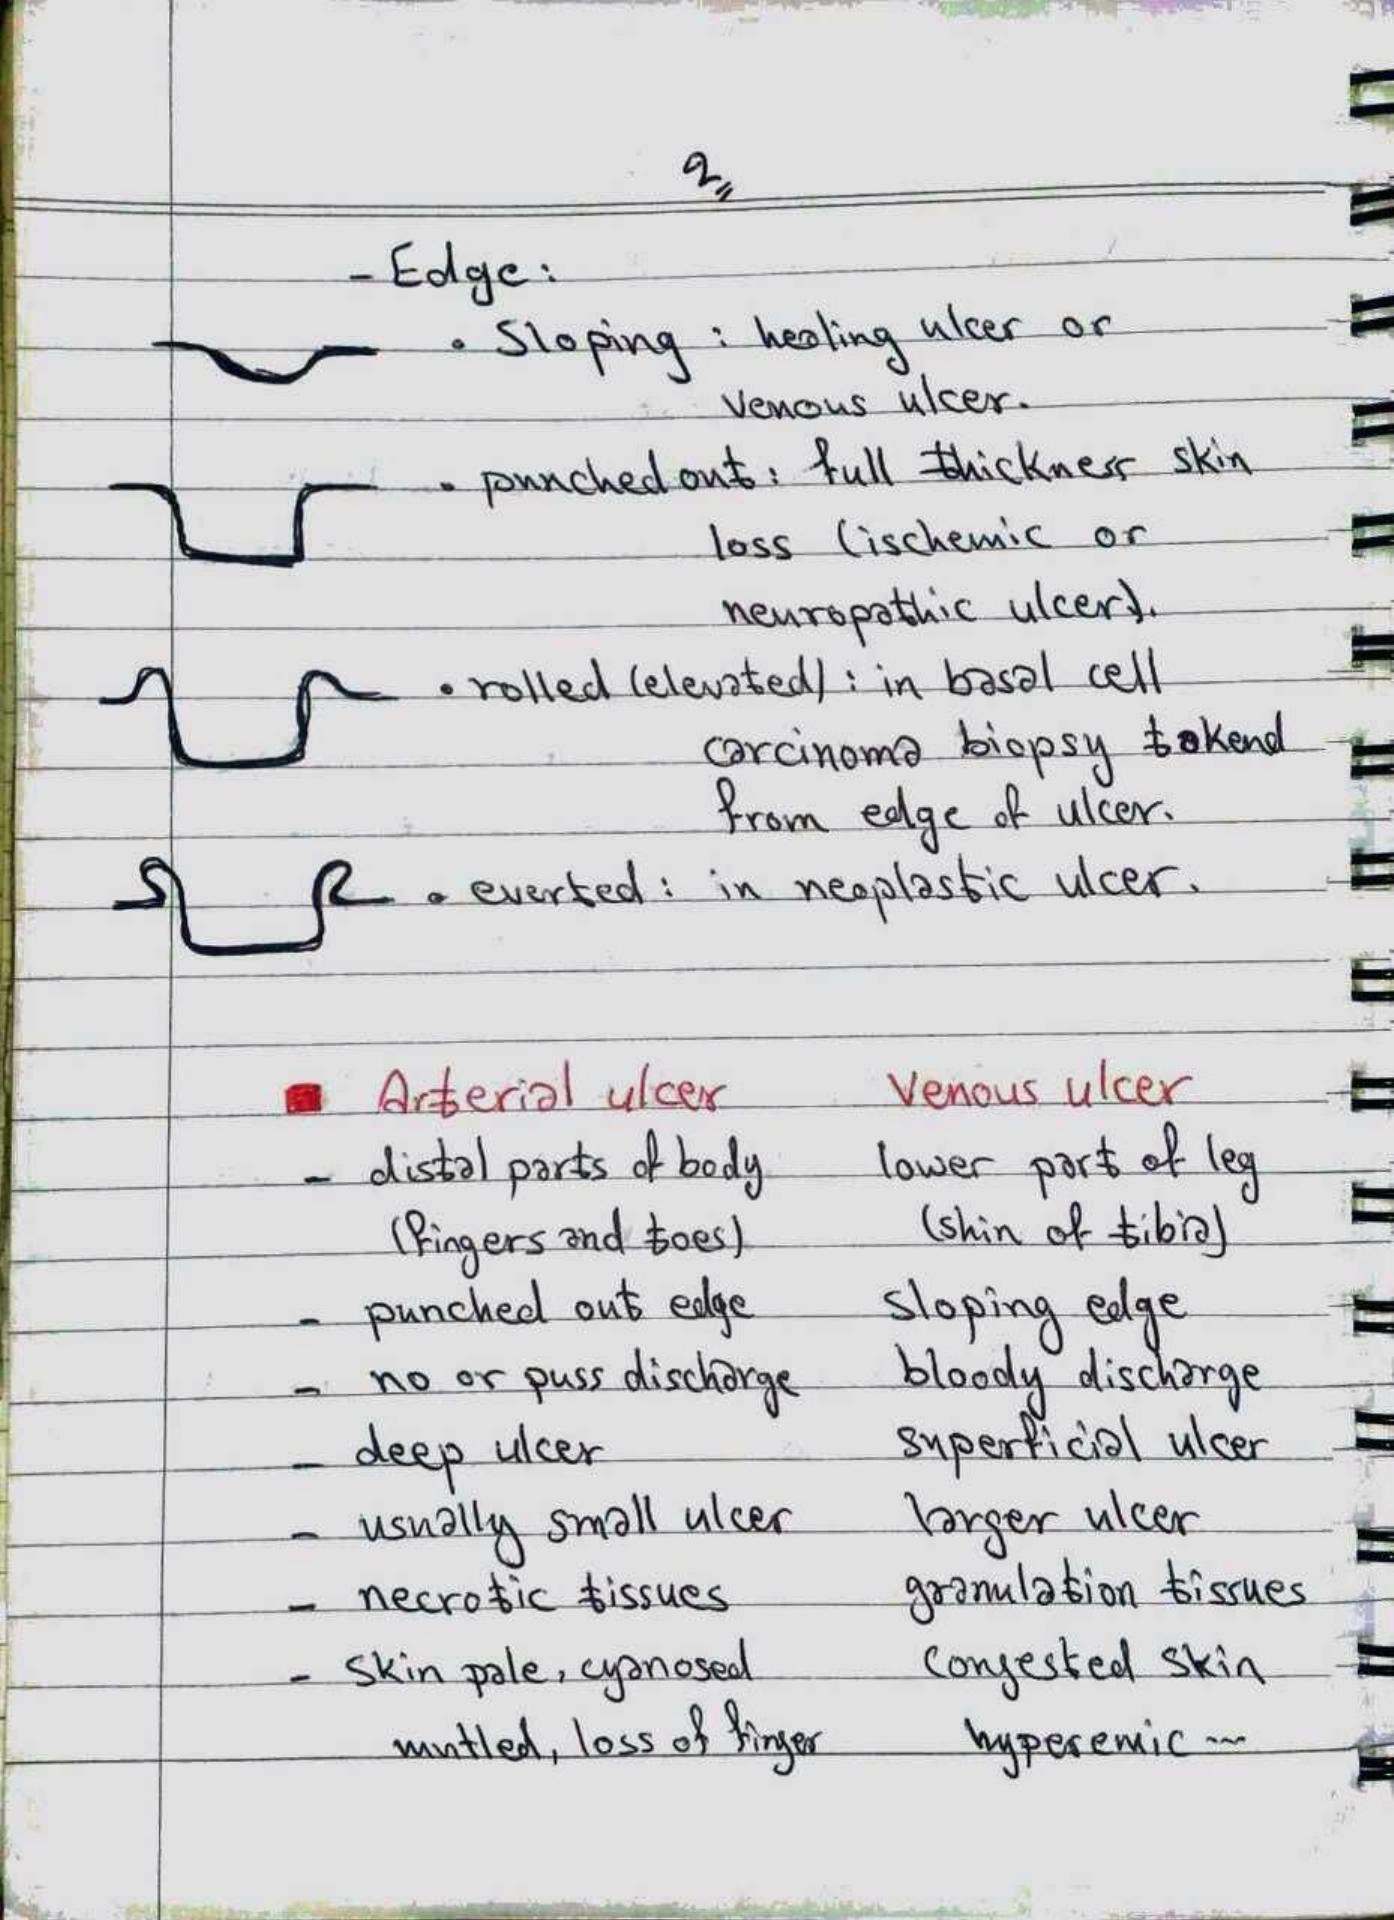 2
- Edge:
• Sloping : healing ulcer or
venous ulcer.
• punched out : full thickness skin
loss (ischemic or
neuropathic ulcer).
• rolled (elevated) : in basal cell
carcinoma biopsy takend
from edge of ulcer.
• everted : in neoplastic ulcer.
Arterial ulcer Venous ulcer
- distal parts of body lower part of leg
(fingers and toes) (shin of tibia)
- punched out edge sloping edge
- no or puss discharge bloody discharge
- deep ulcer superficial ulcer
- usually small ulcer larger ulcer
- necrotic tissues granulation tissues
- skin pale, cyanosed congested skin
mutled, loss of finger hyperemic ...